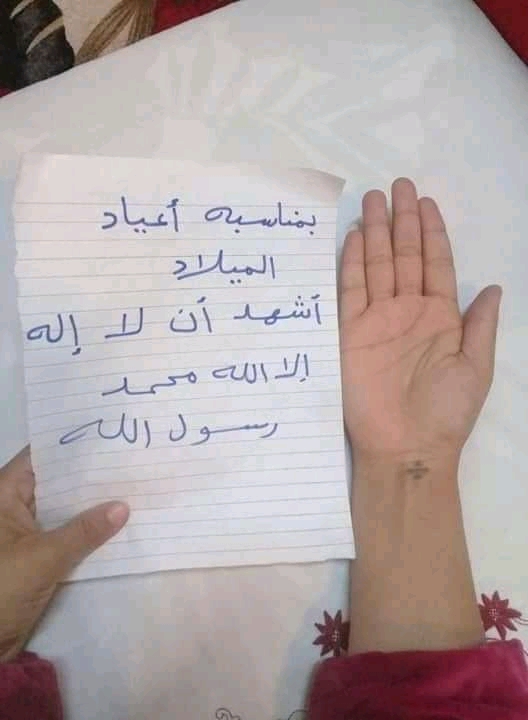 بمناسبه أعياد
الميلاد
أشهد أن لا إله
إلا الله محمد
رسول الله